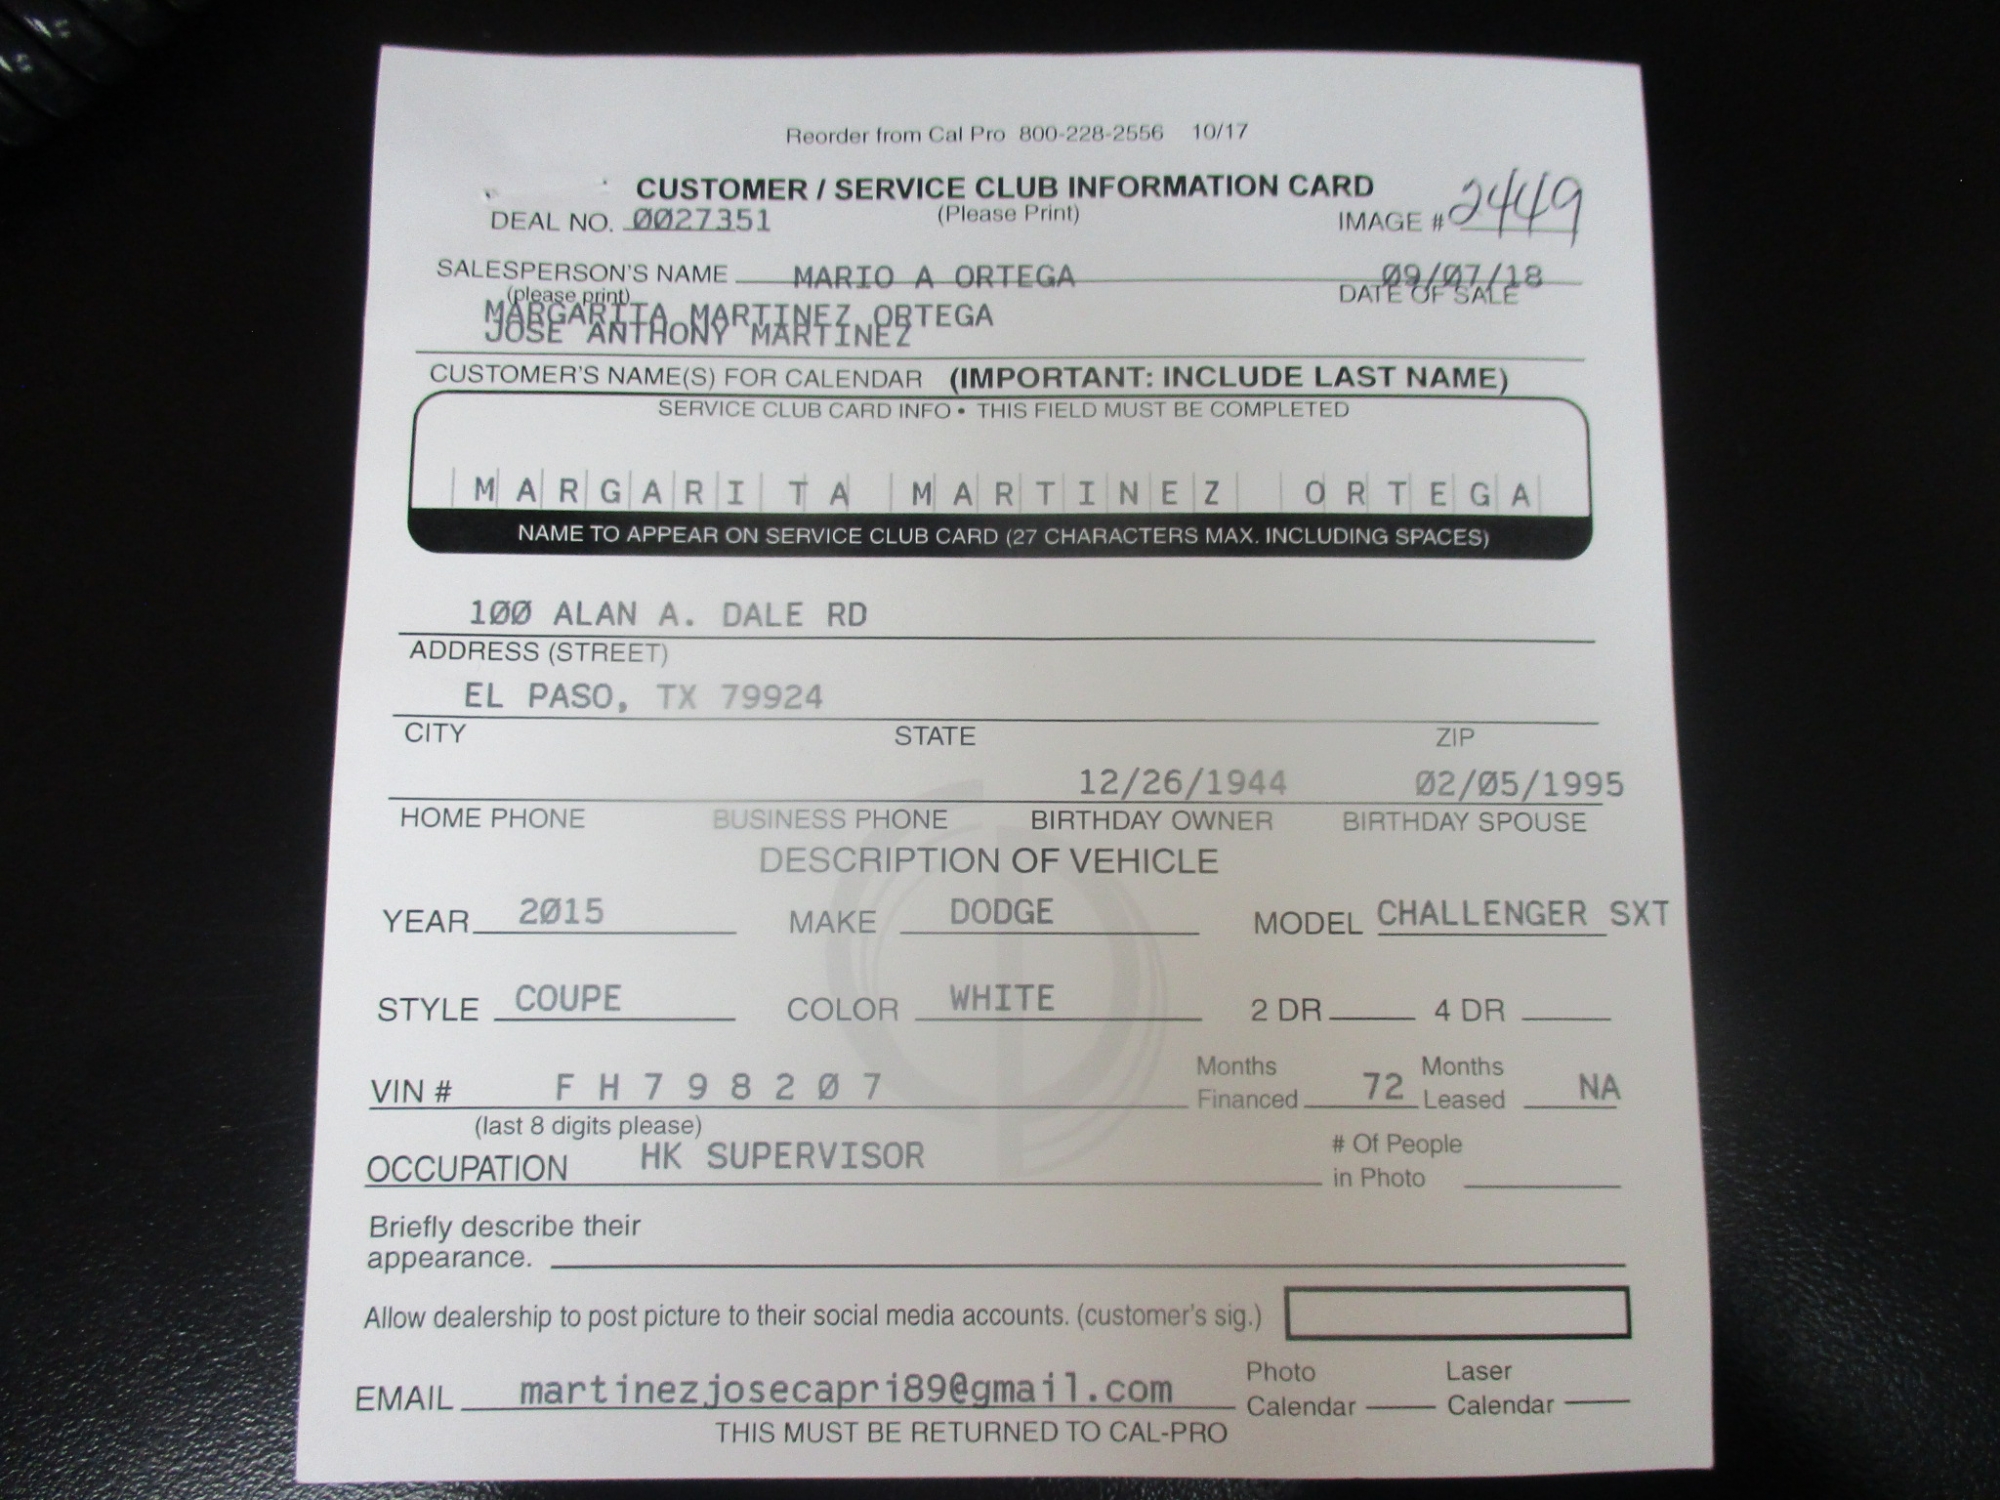 Reorder from Cal Pro 800-228-2556 10/17
CUSTOMER / SERVICE CLUB INFORMATION CARD
DEAL NO. 0027351 (Please Print) IMAGE # 2449
SALESPERSON'S NAME MARIO A ORTEGA 09/07/18
(please print) DATE OF SALE
MARGARITA MARTINEZ ORTEGA
JOSE ANTHONY MARTINEZ
CUSTOMER'S NAME(S) FOR CALENDAR (IMPORTANT: INCLUDE LAST NAME)
SERVICE CLUB CARD INFO • THIS FIELD MUST BE COMPLETED
MARGARITA MARTINEZ ORTEGA
NAME TO APPEAR ON SERVICE CLUB CARD (27 CHARACTERS MAX. INCLUDING SPACES)
100 ALAN A. DALE RD
ADDRESS (STREET)
EL PASO, TX 79924
CITY STATE ZIP
12/26/1944 02/05/1995
HOME PHONE BUSINESS PHONE BIRTHDAY OWNER BIRTHDAY SPOUSE
DESCRIPTION OF VEHICLE
YEAR 2015 MAKE DODGE MODEL CHALLENGER SXT
STYLE COUPE COLOR WHITE 2 DR 4 DR
Months Months
VIN # F H 7 9 8 2 0 7 Financed 72 Leased NA
(last 8 digits please)
OCCUPATION HK SUPERVISOR # Of People
in Photo
Briefly describe their
appearance.
Allow dealership to post picture to their social media accounts. (customer's sig.)
Photo Laser
EMAIL martinezjosecapri89@gmail.com Calendar Calendar
THIS MUST BE RETURNED TO CAL-PRO